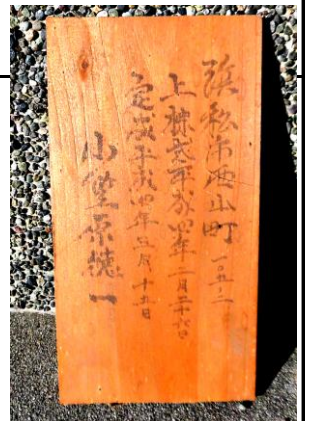 浜松市西山町 一〇五-二
上棟式平成四年二月二十六日
完成平成四年五月十五日
小笠原徳一